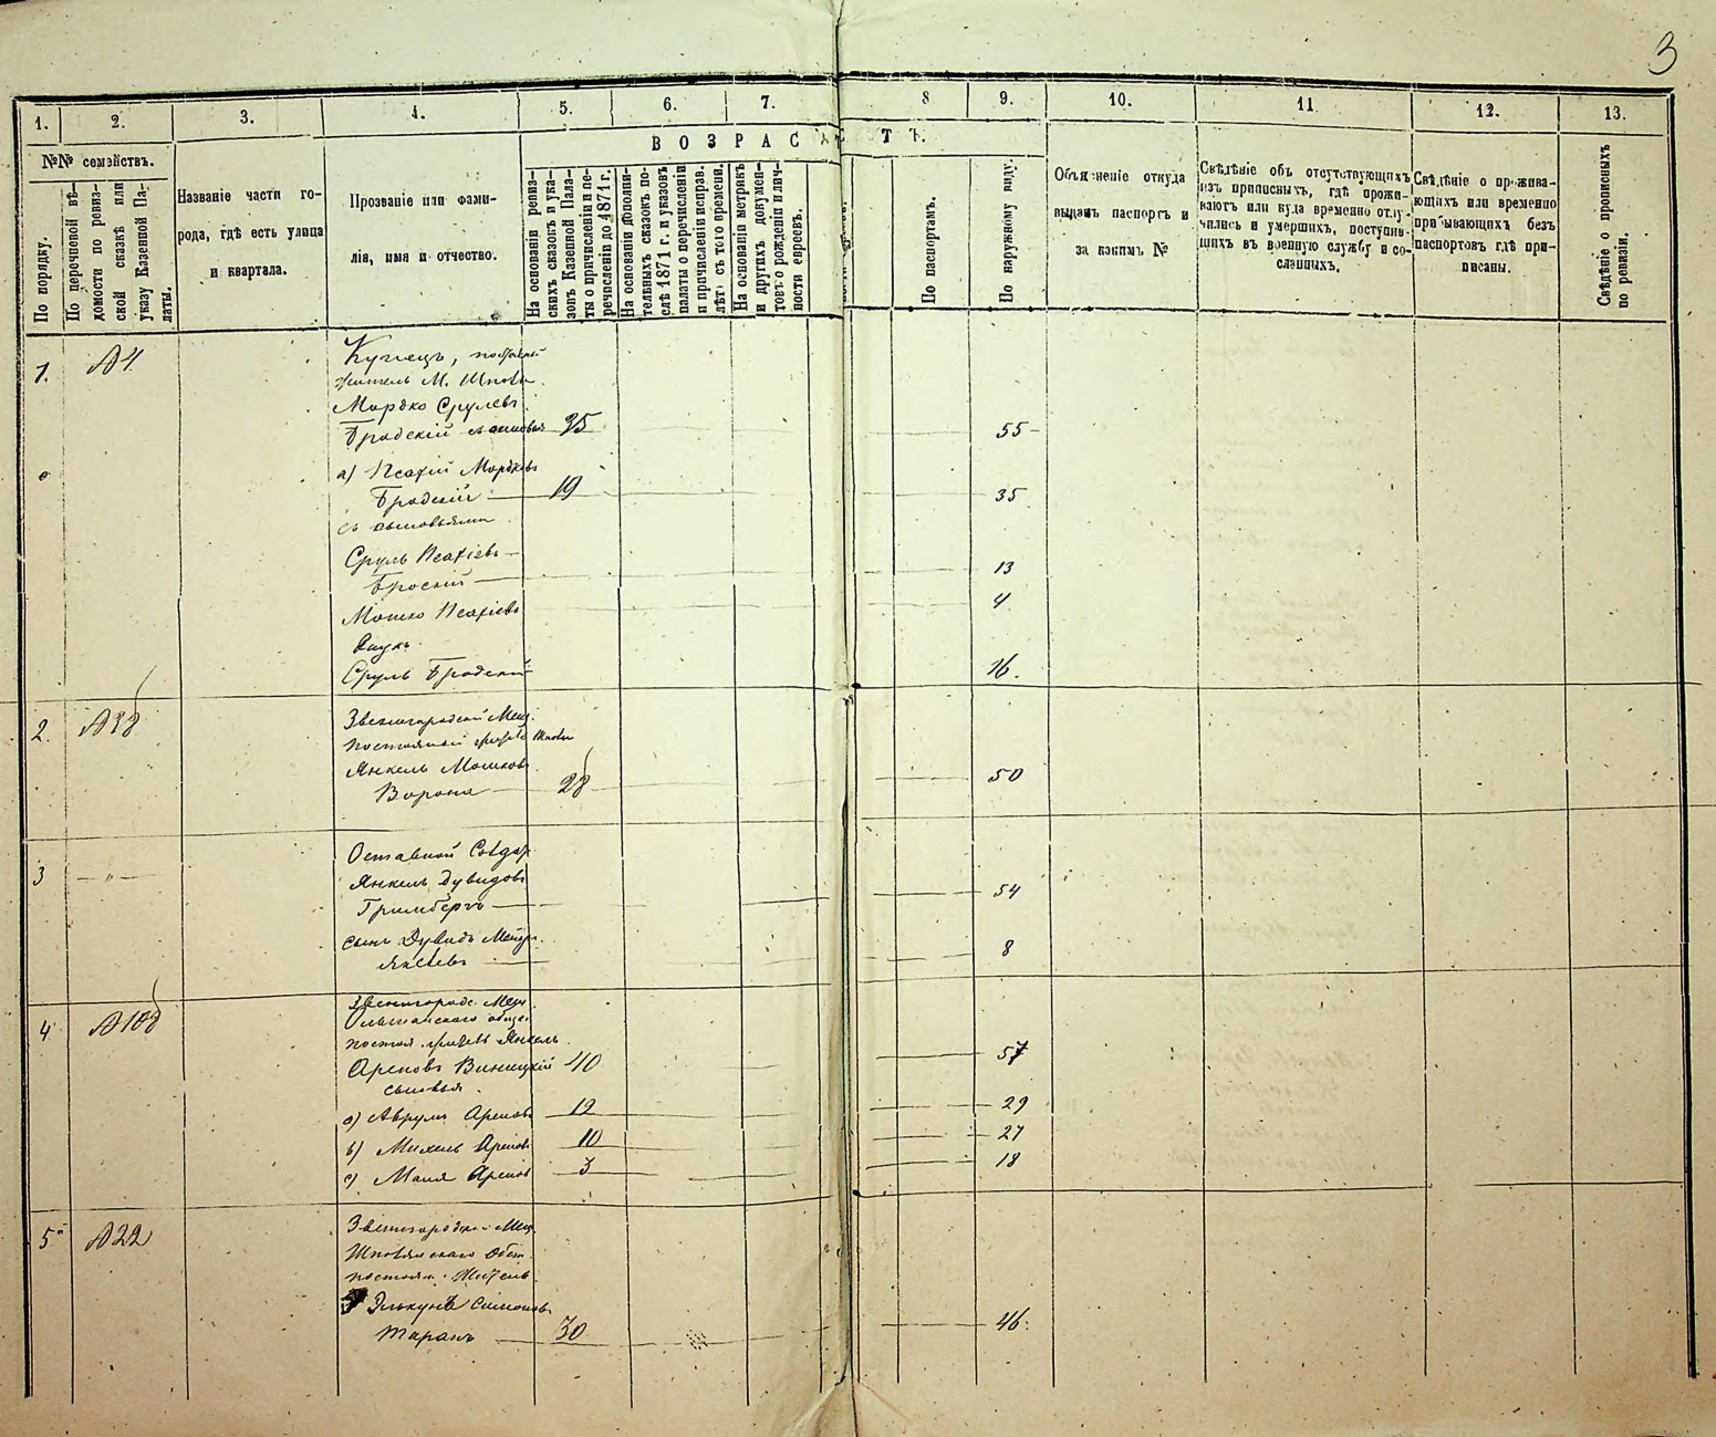 3
1. 2. 3. 4. 5. 6. 7. 8 9. 10. 11. 12. 13.
ВОЗРАСТЪ.
№№ семействъ.
По порядку.
По перечневой вѣ-
домости по ревиз-
ской сказкѣ или
указу Казенной Па-
латы.
Названіе части го-
рода, гдѣ есть улица
и квартала.
Прозваніе или фами-
лія, имя и отчество.
На основаніи ревиз-
скихъ сказокъ и ука-
зовъ Казенной Пала-
ты о причисленіи и пе-
речисленіи до 1871 г.
На основаніи дополни-
тельныхъ сказокъ по-
слѣ 1871 г. и указовъ
палаты о перечисленіи
и причисленіи исправ.
лѣтъ съ того времени.
На основаніи метрикъ
и другихъ докумен-
товъ о рожденіи и лич-
ности евреевъ.
По паспортамъ.
По наружному виду.
Объясненіе откуда
выданъ паспортъ и
за какимъ №
Свѣдѣніе объ отсутствующихъ
изъ приписныхъ, гдѣ прожи-
ваютъ или куда временно отлу-
чились и умершихъ, поступив-
шихъ въ военную службу и со-
сланныхъ.
Свѣдѣніе о прожива-
ющихъ или временно
прибывающихъ безъ
паспортовъ гдѣ при-
писаны.
Свѣдѣніе о прописныхъ
по ревизіи.
1. №4
Купецъ,
житель М. Шпола
Мордко Срулевъ
Бродскій 25 55
а) Псахій Мордковъ
Бродскій 19 35
съ сыновьями
Сруль Псахіевъ
Броскій 13
Мошко Псахіевъ 4
Внукъ
Сруль Бродскій 16.
2. №38
Звенигородскій Мещ.
Постоянный Шпола
Янкель Мошковъ
Ворона 28 50
3 — " —
Отставной Солдат
Янкель Дувидовъ
Гримбергъ 54
сынъ Дувидъ
8
4 №108
Звенигородс. Мещ.
Ольшанскаго общ.
постоя. Янкель
Ароновъ Виницкій 40 57
сыновья
а) Аврумъ Ароновъ 12 29
в) Михель Ароновъ 10 27
с) Маня Аронов 3 18
5 №22
Звенигородск. Мещ.
Шполянскаго Общ.
постоян. Житель
Элькуне Симоновъ
Таранъ 30 46.